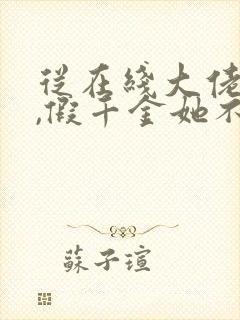 從在綫大佬
,假千金她不
蘇子瑄